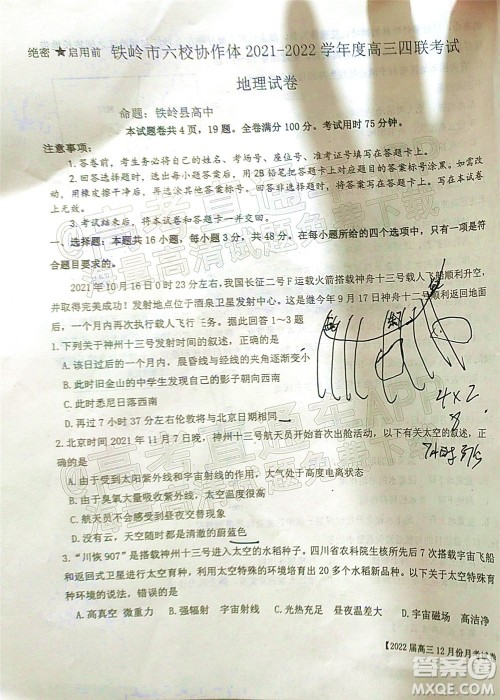 绝密★启用前 铁岭市六校协作体2021-2022学年度高三四联考试
地理试卷
命题：铁岭县高中
本试题卷共4页，19题。全卷满分100分。考试用时75分钟。
注意事项：
1.答卷前，考生务必将自己的姓名、考场号、座位号、准考证号填写在答题卡上。
2.回答选择题时，选出每小题答案后，用2B铅笔把答题卡上对应题目的答案标号涂黑。如需改
动，用橡皮擦干净后，再选涂其他答案标号。回答非选择题时，将答案写在答题卡上。写在本试卷
上无效。
3.考试结束后，将答题卡一并交回。
一、选择题：本题共16小题，每小题3分，共48分。在每小题所给的四个选项中，只有一项是符
合题目要求的。
2021年10月16日0时23分左右，我国长征二号F运载火箭搭载神舟十三号载人飞船顺利升空，
并取得完美成功！发射地点位于酒泉卫星发射中心。这是继今年9月17日神舟十二号顺利返回地面
后，一个月内再次执行载人飞行任务。据此回答1～3题
1.下列关于神州十三号发射时间的叙述，正确的是
A.该日过后的一个月内，晨昏线与经线的夹角逐渐变小
B.此时旧金山的中学生发现自己的影子朝向西南
C.此时悉尼日落西南
D.再过7小时37分左右伦敦将与北京日期相同
2.北京时间2021年11月7日晚，神州十三号航天员开始首次出舱活动，以下有关太空的叙述，正
确的是
A.由于受到太阳紫外线和宇宙射线的作用，大气处于高度电离状态
B.由于臭氧大量吸收紫外线，太空温度很高
C.航天员感受不到昼夜交替现象
D.太空没有云雨现象，能看到清澈的蔚蓝色
3.“川恢907”是搭载神州十三号进入太空的水稻种子。四川省农科院先后搭乘了7次宇宙飞船
和返回式卫星进行太空育种，利用太空特殊的环境培育出20多个水稻新品种。以下关于太空
特殊的环境条件，错误的是
A.高真空 微重力 B.强辐射 宇宙射线 C.光热充足 昼夜温差大 D.宇宙磁场 高洁净
4×2
8
【2022届高三12月份月考试卷
答案圈
MXQE.COM